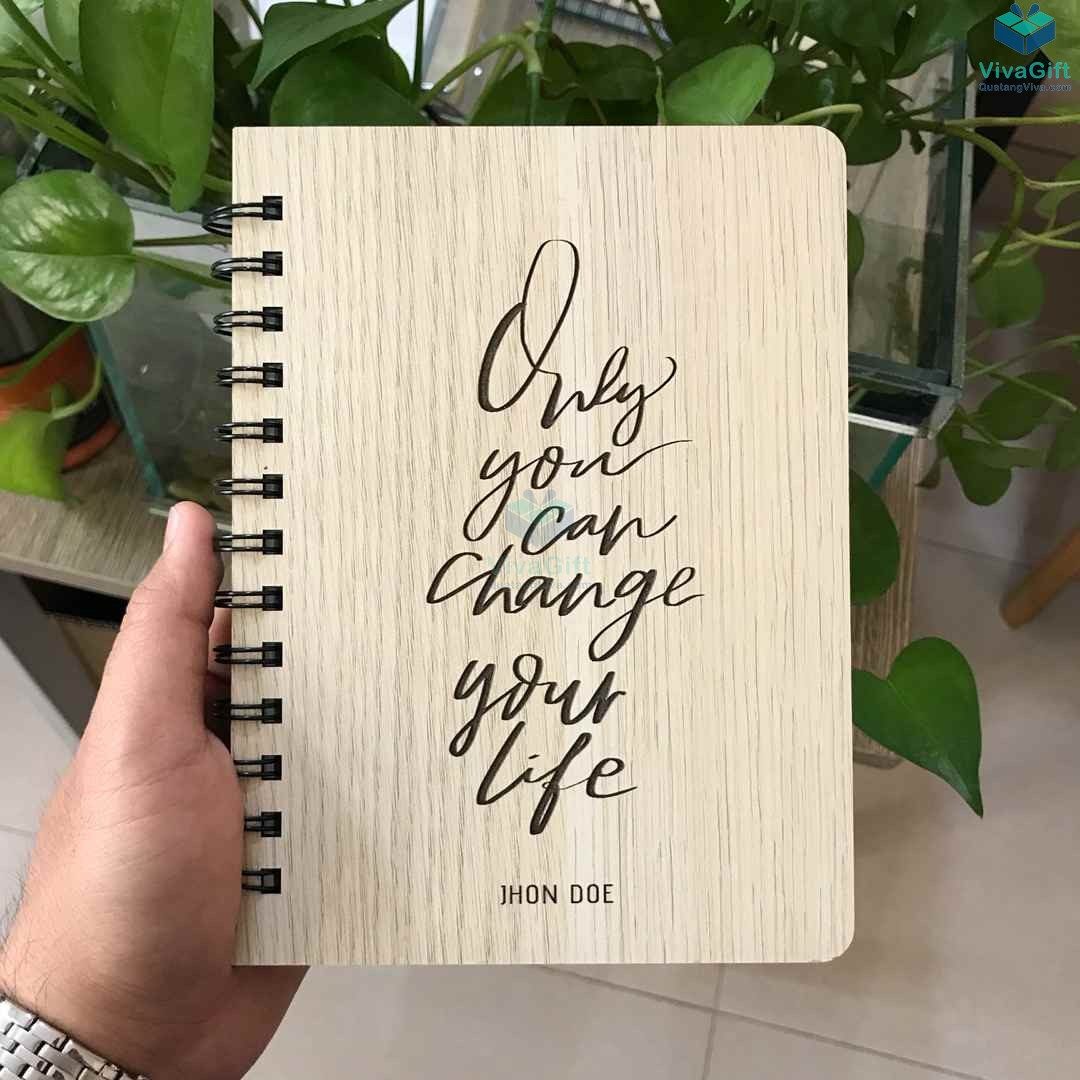 VivaGift
QuatangViva.com
Only
you
can
VivaGift
change
your
life
JHON DOE